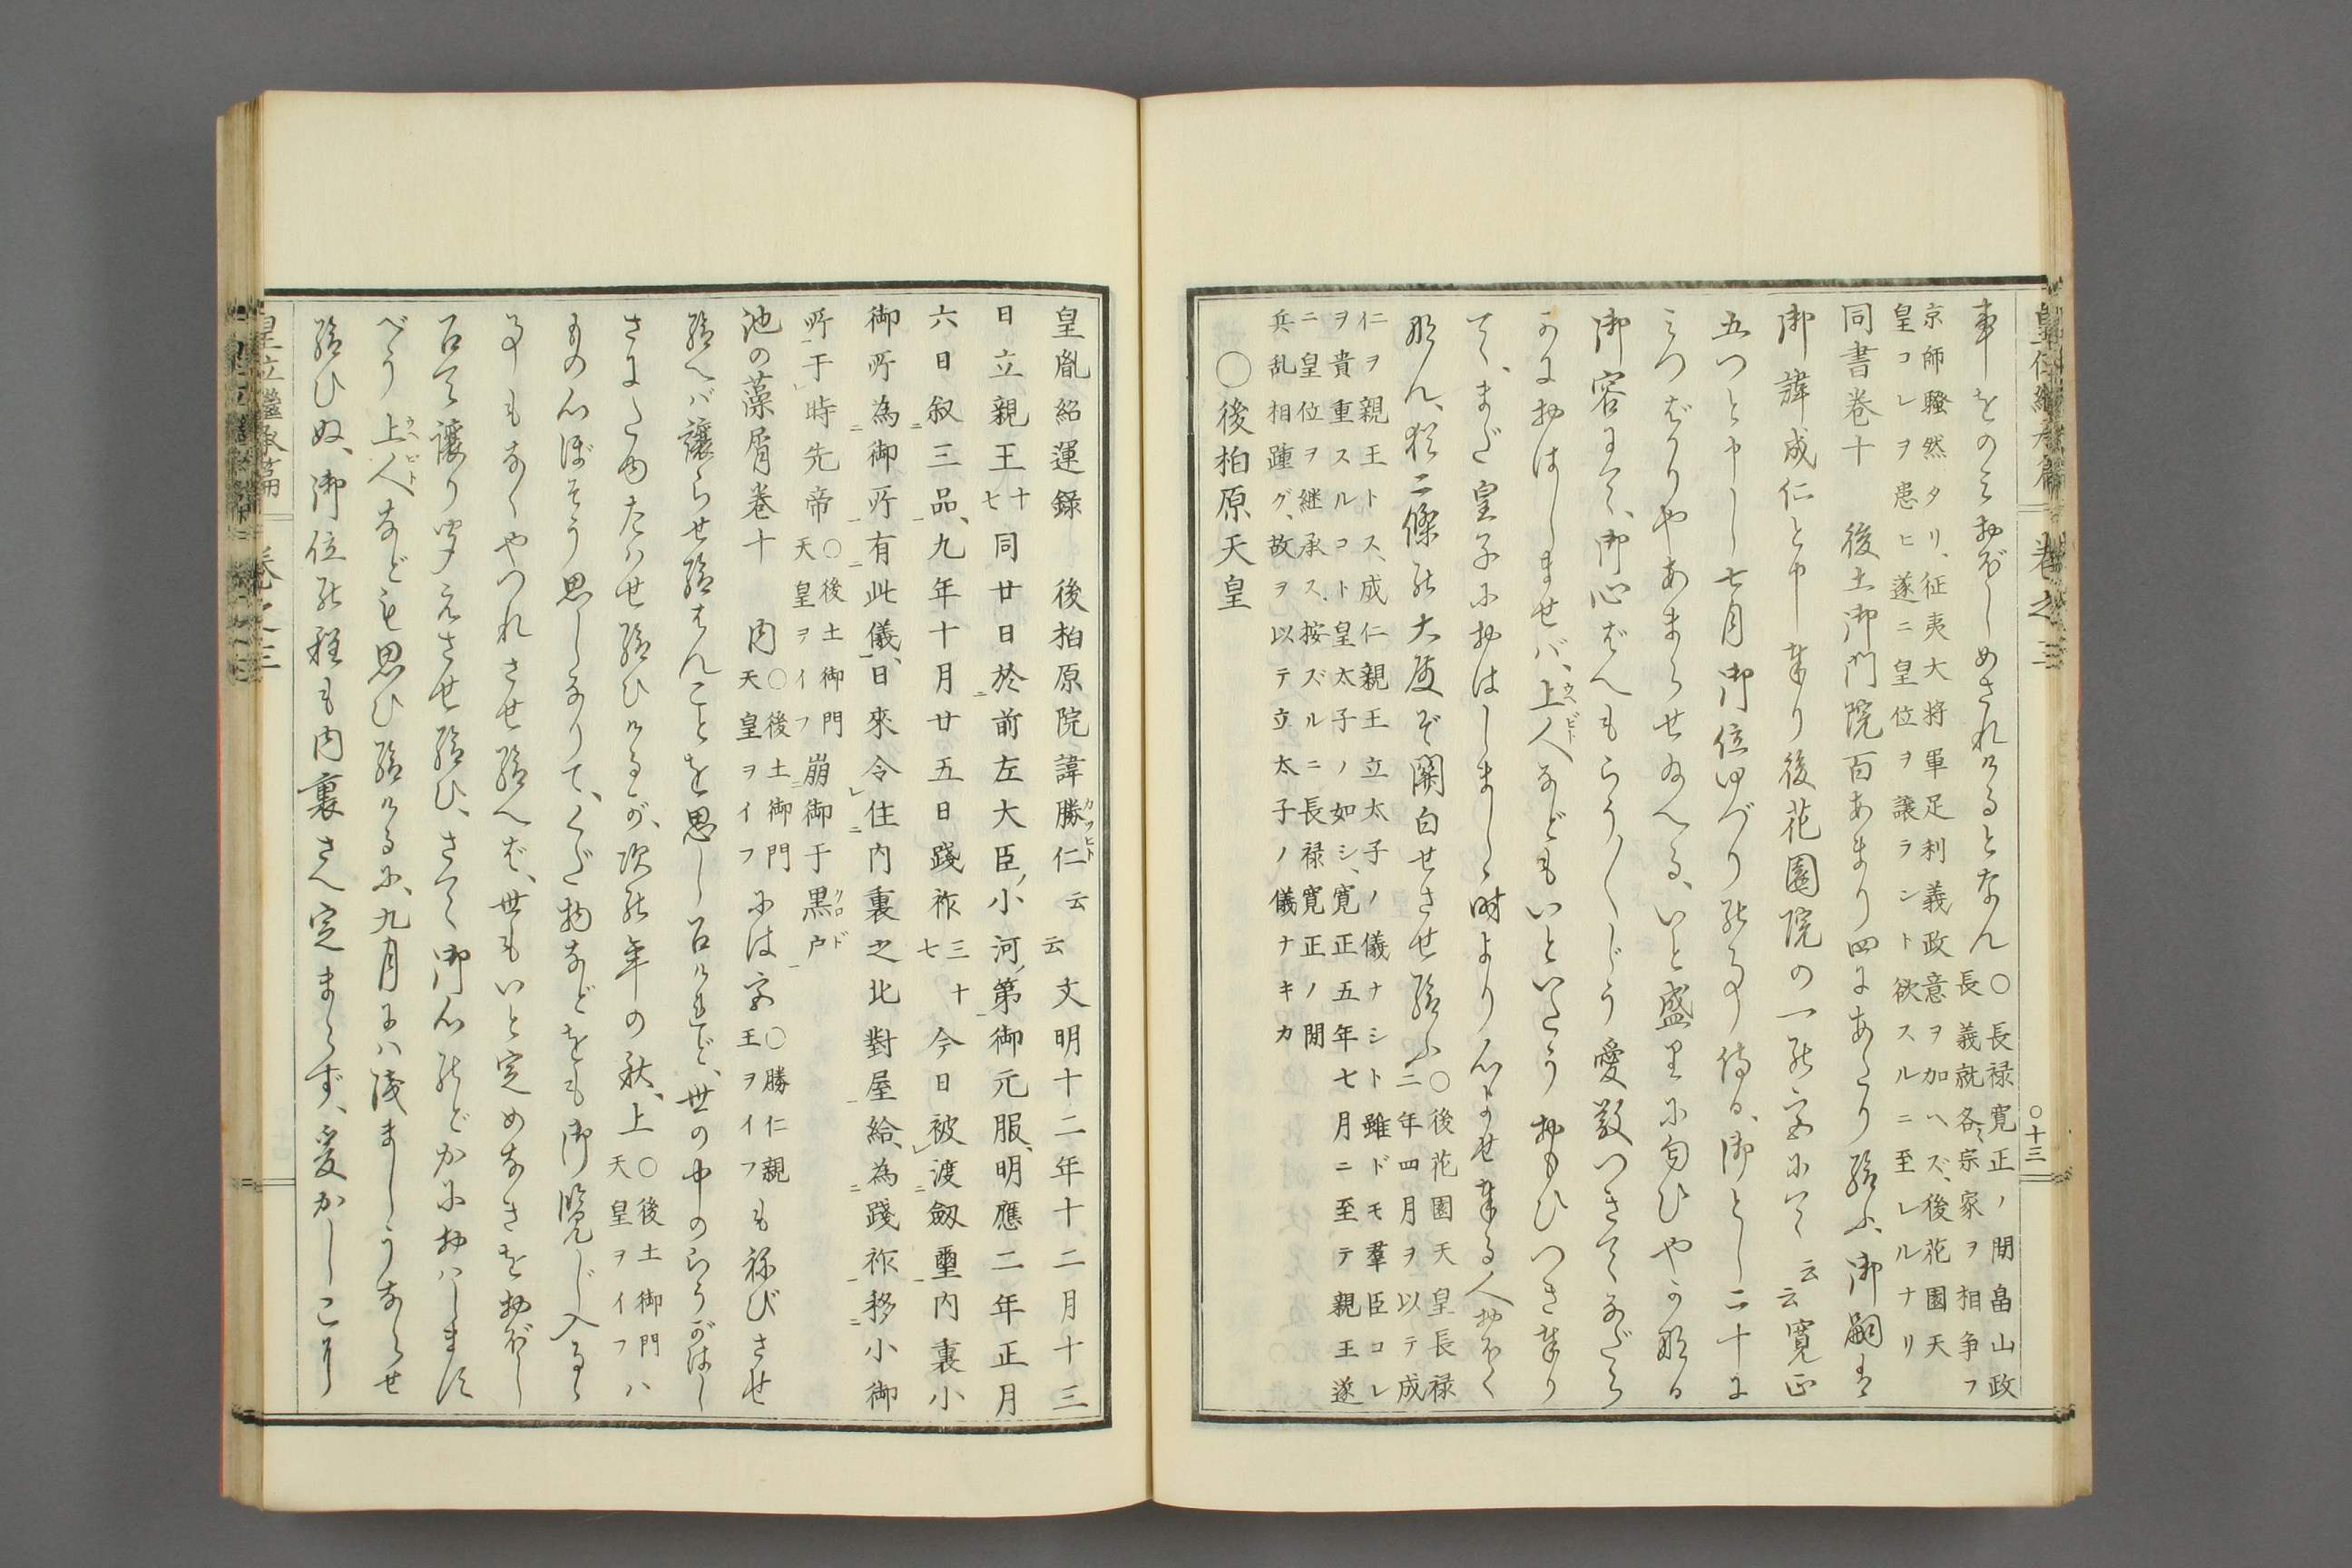 皇位繼承篇 卷之三 ○十三
事をのミおぼしめされけるとなん○長禄寛正ノ間畠山政長義就各宗家ヲ相争フ
京師騒然タリ、征夷大将軍足利義政意ヲ加ヘズ、後花園天皇コレヲ患ヒ遂ニ皇位ヲ譲ラント欲スルニ至レルナリ
同書巻十 後土御門院百あまり四にあたり給ふ、御嗣は
御諱成仁と申し奉り後花園院の一の宮にて云云寛正
五つと申し七月御位ゆづりの事侍る、御とし二十に
みつばかりやあまらせ給へる、いと盛りに匂ひやかなる
御容にて、御心ばへもらう〳〵じう愛敬つきてなだら
かにおはしませバ、上人などもいといたうおもひつき奉り
て、まだ皇子におはしましゝ時より心よせ奉る人おほく
なん、猶二條の大殿ぞ關白せさせ給ふ○後花園天皇長禄二年四月ヲ以テ成
仁ヲ親王トス、成仁親王立太子ノ儀ナシト雖ドモ羣臣コレヲ貴重スルコト皇太子ノ如シ、寛正五年七月ニ至テ親王遂
ニ皇位ヲ継承ス、按ズルニ長禄寛正ノ間兵乱相踵グ、故ヲ以テ立太子ノ儀ナキカ
○後柏原天皇
皇胤紹運録 後柏原院諱勝仁云云文明十二年十二月十三
日立親王十七同廿日於前左大臣小河第御元服、明應二年正月
六日叙三品、九年十月廿五日踐祚三十七今日被渡劔璽内裏小
御所為御所有此儀、日來令住内裏之北對屋給、為踐祚移小御
所于時先帝○後土御門天皇ヲイフ崩御于黒戸
池の藻屑巻十 内○後土御門天皇ヲイフには宮○勝仁親王ヲイフもねびさせ
給へバ譲らせ給はんことを思し召けれど、世の中のらうがはし
さにためたハせ給ひけるが、次の年の秋、上○後土御門天皇ヲイフハ
もの心ぼそう思しなりて、くだ物などをも御覧じ入るゝ
事もなくやつれさせ給へば、世もいと定めなきをおぼし
召て譲り聞えさせ給ひ、さて御心のどかにおハしまス
べう上人なども思ひ給けるに、九月にハ浅ましうならせ
給ひぬ、御位の程も内裏さへ定まらず、爰かしこより
皇位繼承篇 卷之三